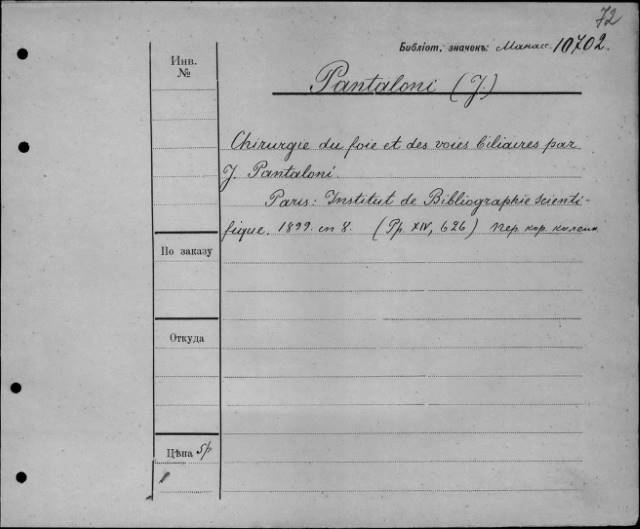 72
Библіот. значокъ: Манас. 10702.
Инв. №
Pantaloni (J.)
Chirurgie du foie et des voies biliaires par
J. Pantaloni.
Paris: Institut de Bibliographie scienti-
fique. 1899. in 8. (Pp XIV, 626) пер. кор.
По заказу
Откуда
Цѣна 5р